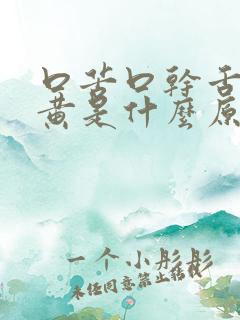 口苦口幹舌
黄是什麼原
一个小彤彤
未经同意禁止转载